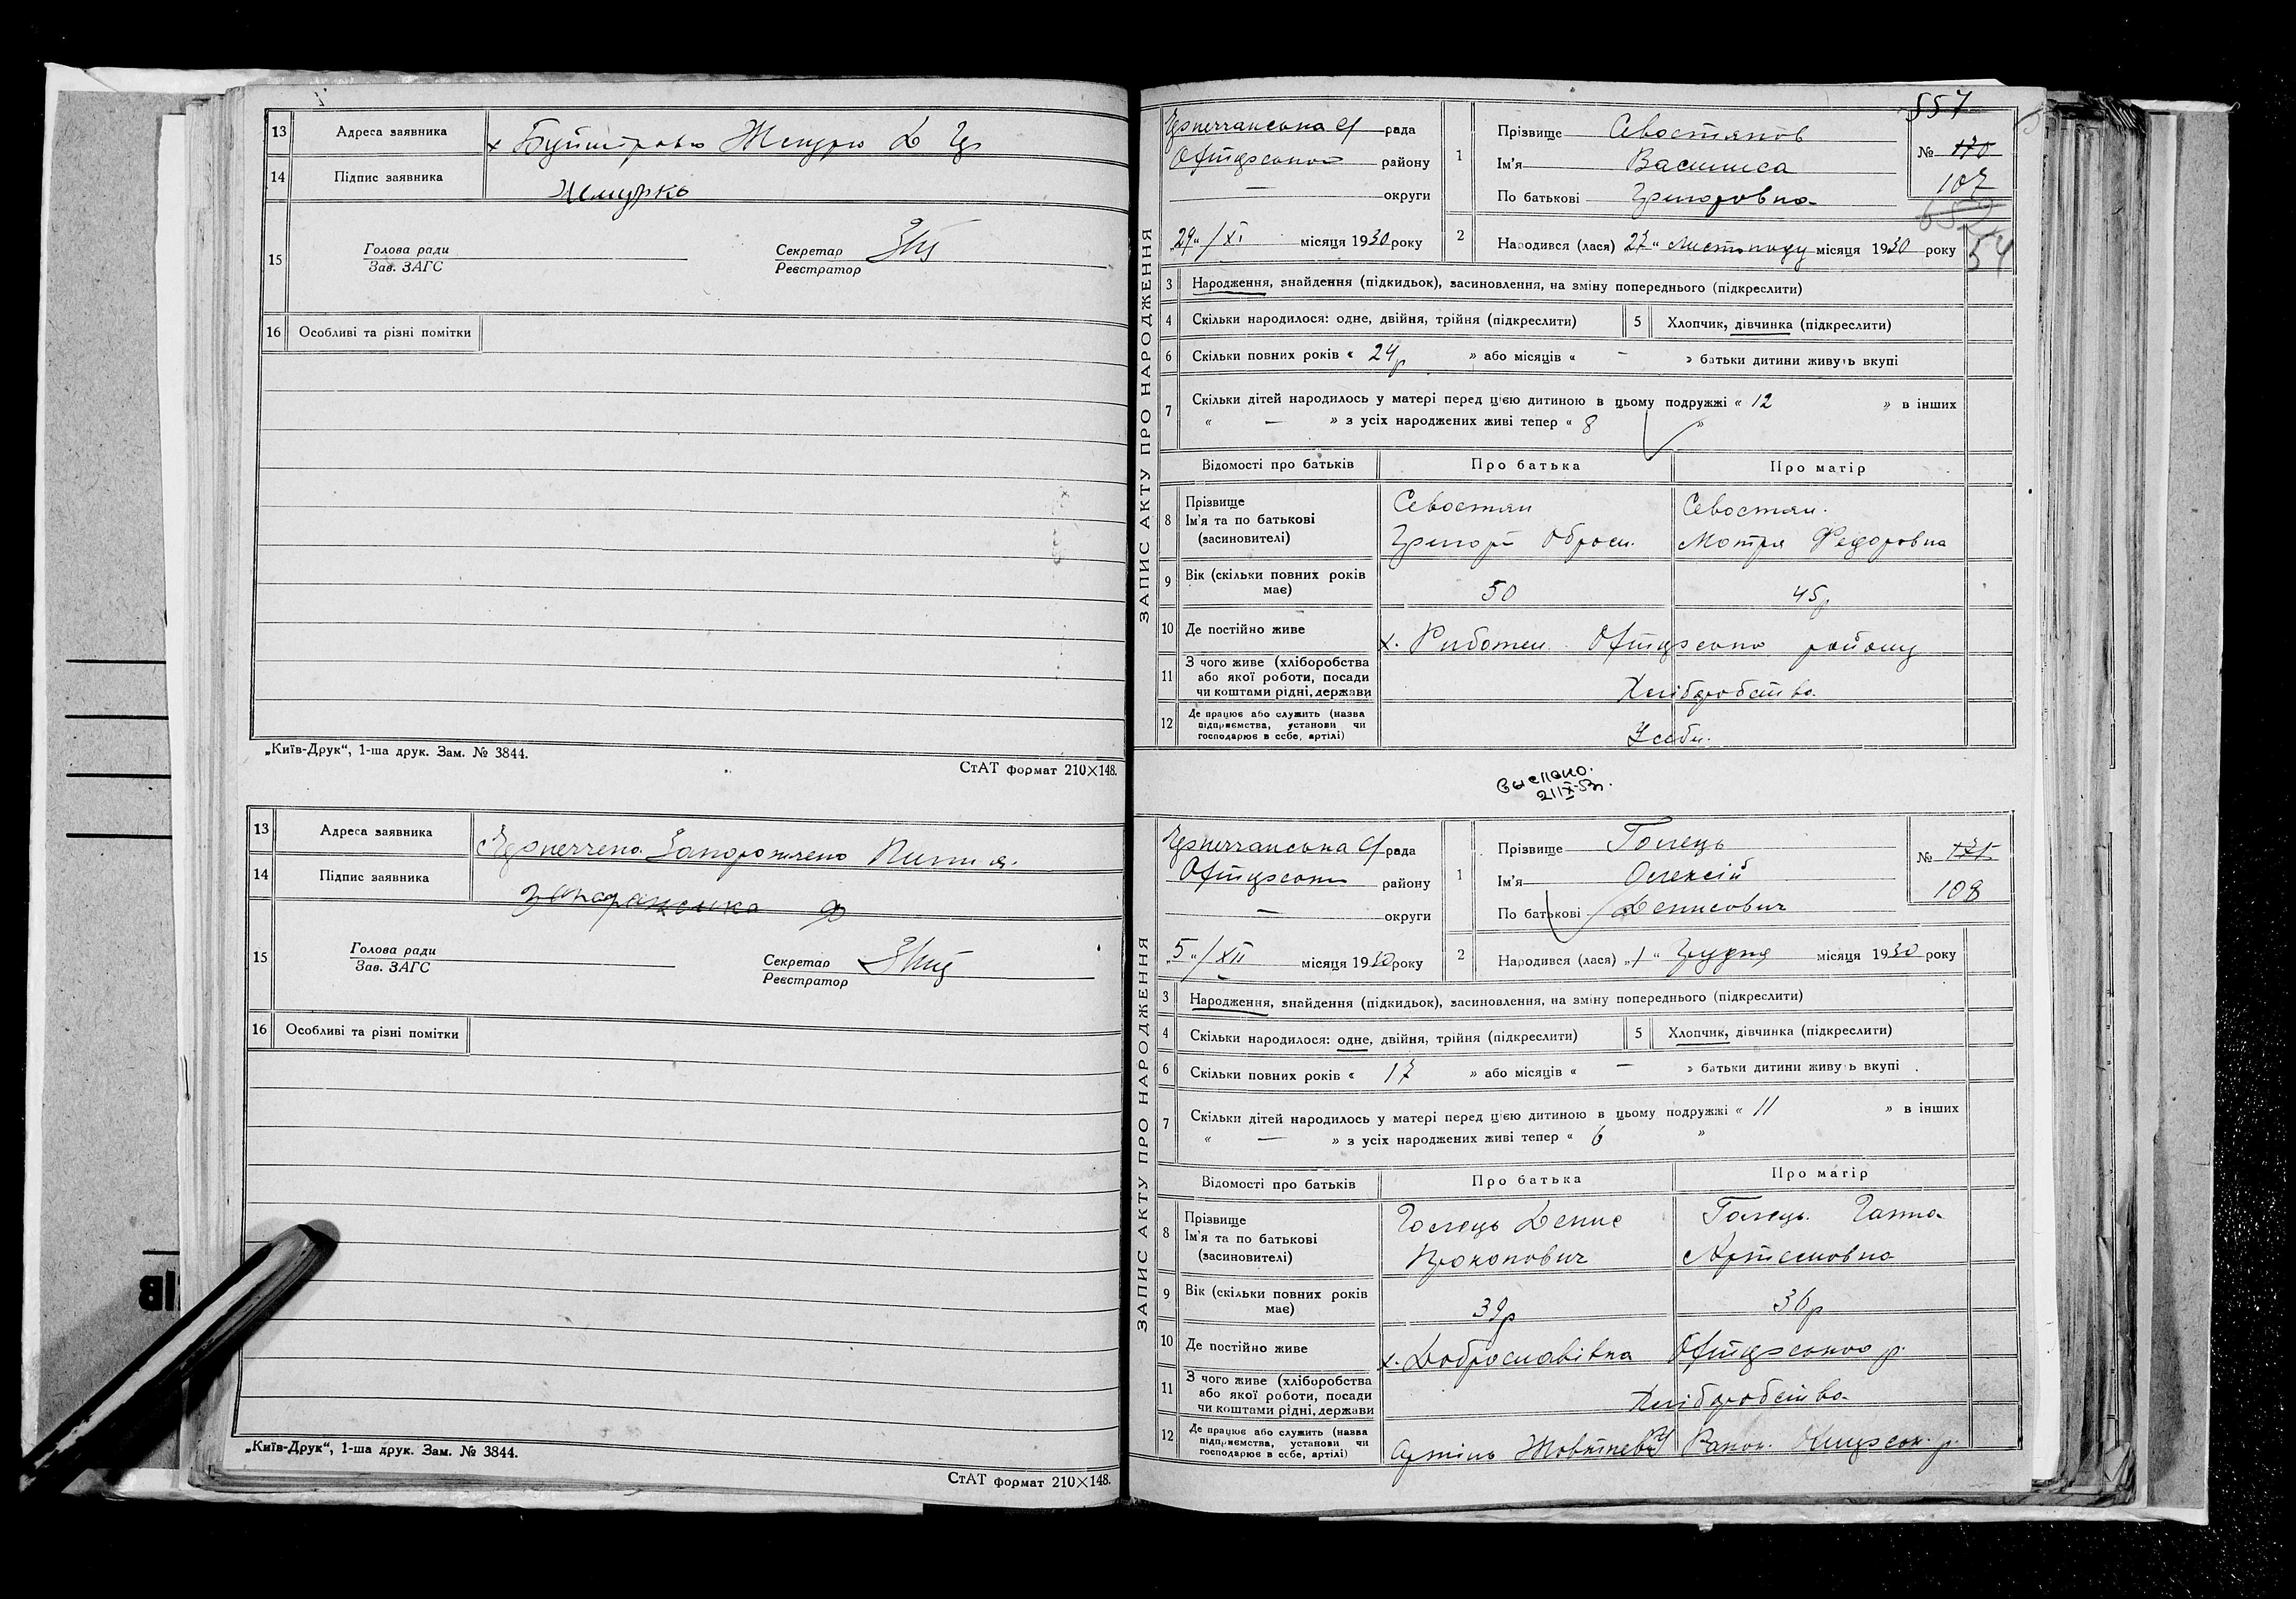 13 Адреса заявника
14 Підпис заявника
Жмурко
15 Голова ради
Зав. ЗАГС
Секретар
Реєстратор
16 Особливі та різні помітки
„Київ-Друк“, 1-ша друк. Зам. № 3844.
СтАТ формат 210×148.
13 Адреса заявника
14 Підпис заявника
15 Голова ради
Зав. ЗАГС
Секретар
Реєстратор
16 Особливі та різні помітки
„Київ-Друк“, 1-ша друк. Зам. № 3844.
СтАТ формат 210×148.
557
ЗАПИС АКТУ ПРО НАРОДЖЕННЯ
рада
району
— округи
„29“/XI місяця 1930 року
1 Прізвище Севостянов
Ім'я Василиса
По батькові Григоровна
№ 170
107
54
2 Народився (лася) 27 “ Листопаду місяця 1930 року
3 Народження, знайдення (підкидьок), засиновлення, на зміну попереднього (підкреслити)
4 Скільки народилося: одне, двійня, трійня (підкреслити) 5 Хлопчик, дівчинка (підкреслити)
6 Скільки повних років « 24р » або місяців « — » батьки дитини живуть вкупі
7 Скільки дітей народилось у матері перед цією дитиною в цьому подружжі « 12 » в інших
« — » з усіх народжених живі тепер « 8 »
Відомості про батьків Про батька Про матір
8 Прізвище
Ім'я та по батькові
(засиновителі)
Севостян
Григорі
Севостян.
Мотря Федоровна
9 Вік (скільки повних років має) 50 45р
10 Де постійно живе х. району
11 З чого живе (хліборобства або якої роботи, посади чи коштами рідні, держави Хліборобство
12 Де працює або служить (назва підприємства, установи чи господарює в себе, артілі) У себе
выслано.
ЗАПИС АКТУ ПРО НАРОДЖЕННЯ
рада
району
— округи
„5“/XII місяця 1930 року
1 Прізвище Голець
Ім'я Олексій
По батькові Денисович
№ 171
108
2 Народився (лася) „1“ Грудня місяця 1930 року
3 Народження, знайдення (підкидьок), засиновлення, на зміну попереднього (підкреслити)
4 Скільки народилося: одне, двійня, трійня (підкреслити) 5 Хлопчик, дівчинка (підкреслити)
6 Скільки повних років « 17 » або місяців « — » батьки дитини живуть вкупі
7 Скільки дітей народилось у матері перед цією дитиною в цьому подружжі « 11 » в інших
« — » з усіх народжених живі тепер « 6 »
Відомості про батьків Про батька Про матір
8 Прізвище
Ім'я та по батькові
(засиновителі)
Голець Денис
Прокопович
Голець. Ганна
Артемовна
9 Вік (скільки повних років має) 39р 36р
10 Де постійно живе х. Доброславівка р.
11 З чого живе (хліборобства або якої роботи, посади чи коштами рідні, держави Хліборобство
12 Де працює або служить (назва підприємства, установи чи господарює в себе, артілі) Артіль р.